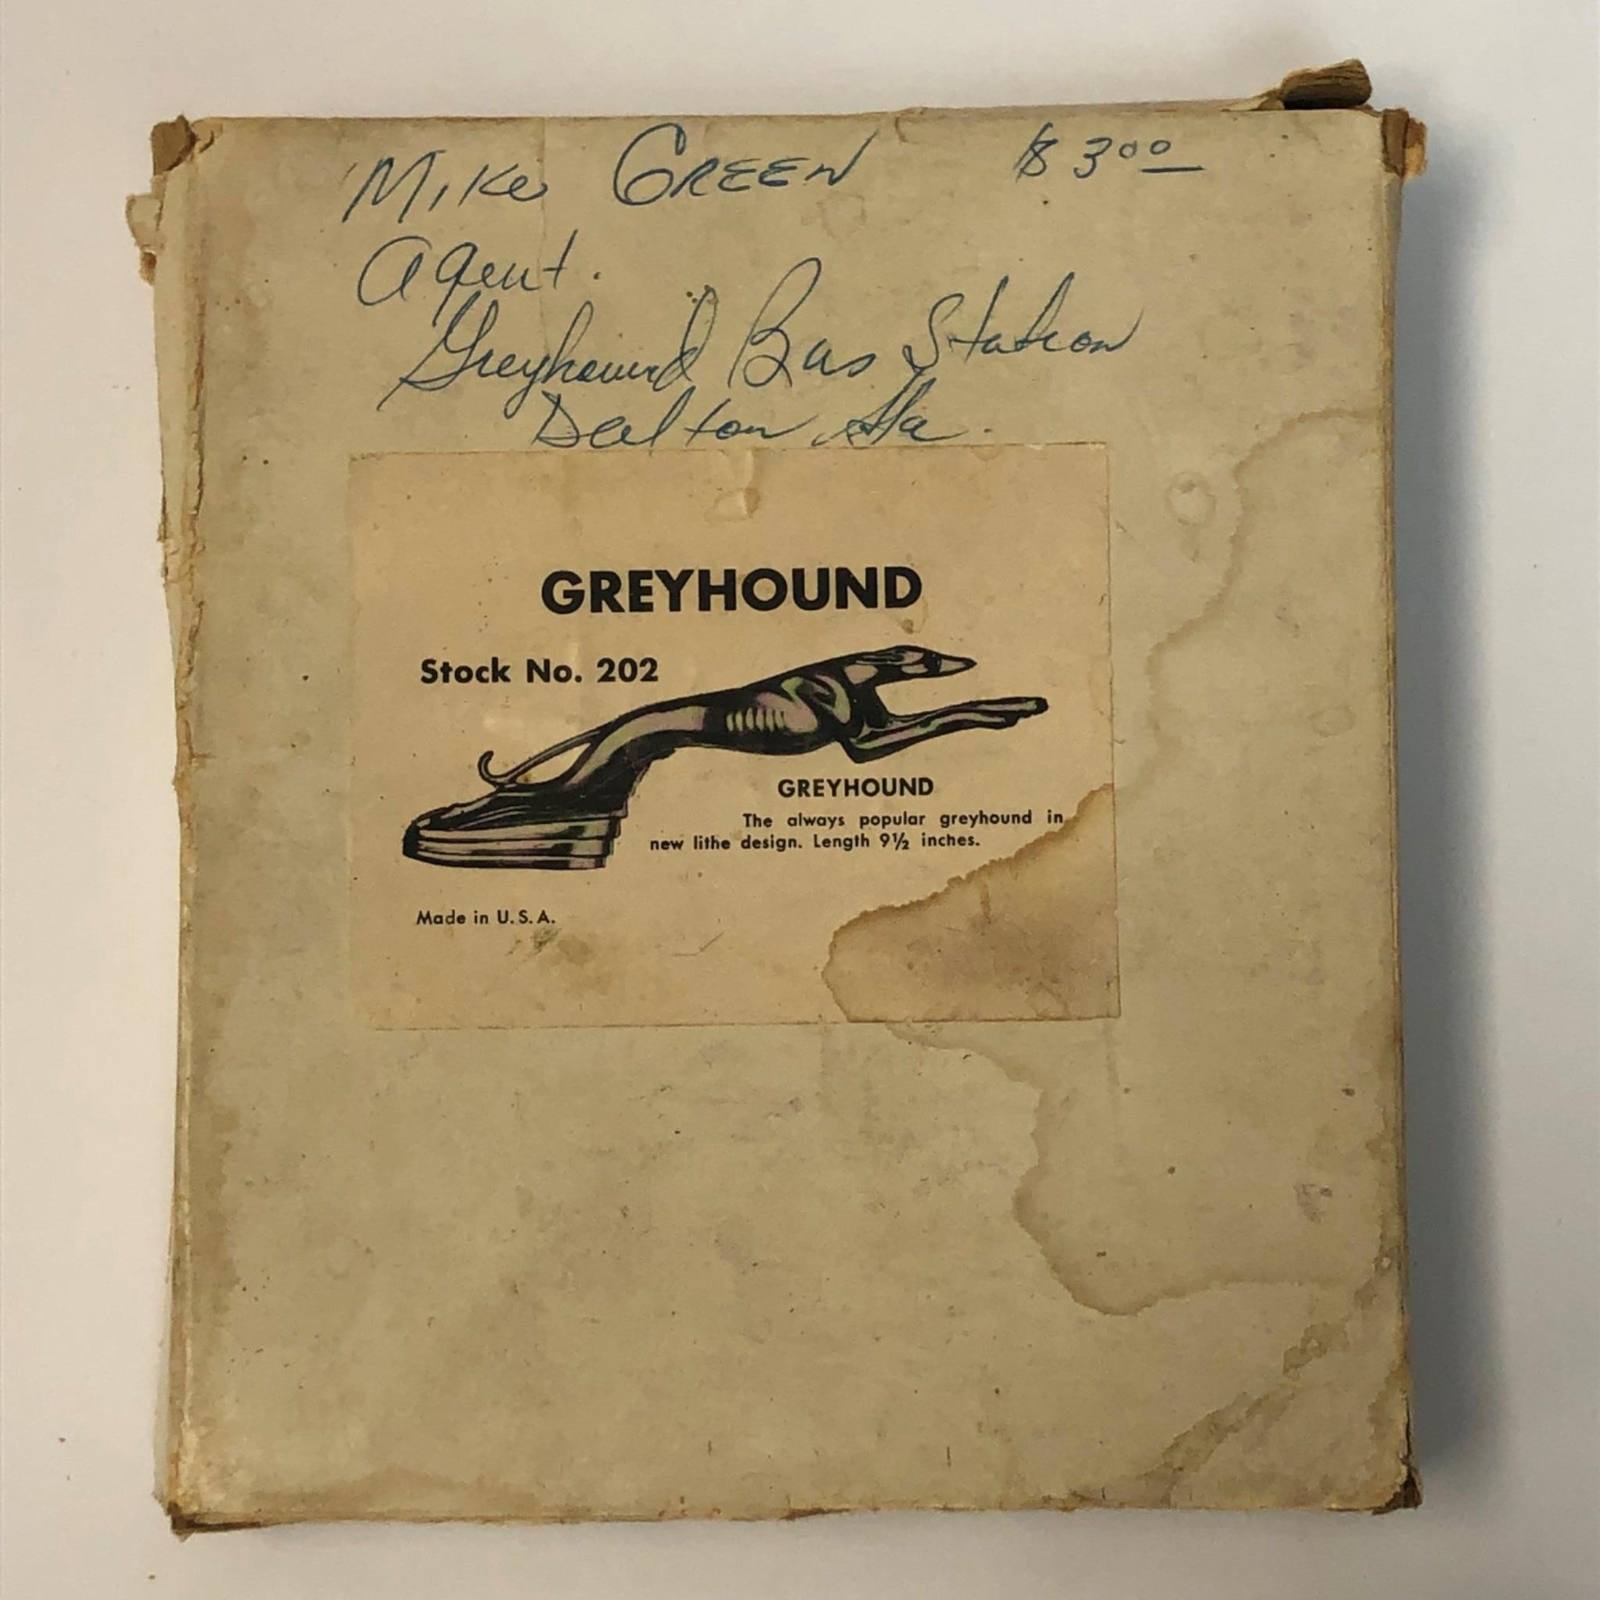 Mike GREEN $3.00
Agent.
Greyhound Bus Station
Dalton, Ga.
GREYHOUND
Stock No. 202
GREYHOUND
The always popular greyhound in
new lithe design. Length 9½ inches.
Made in U.S.A.